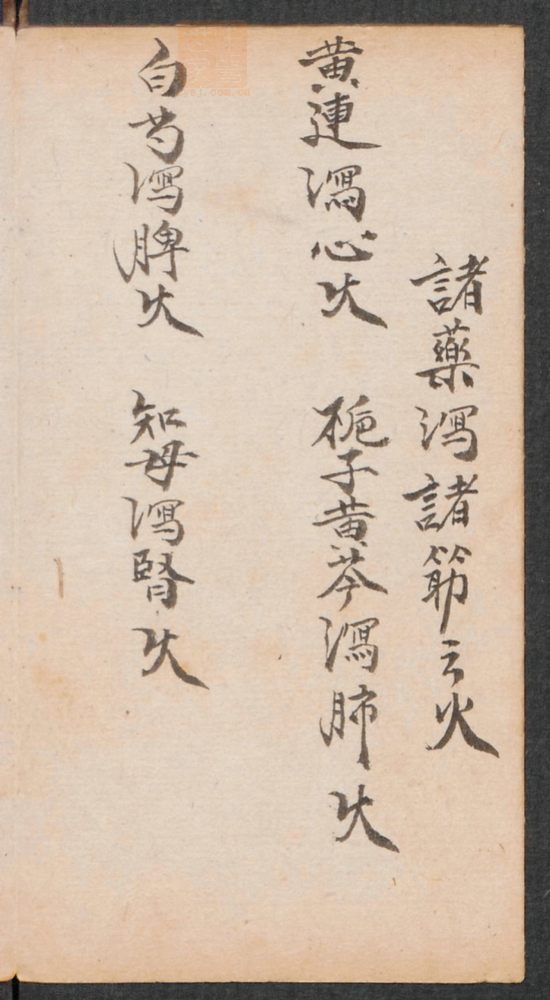 諸藥瀉諸筋之火
黄連瀉心火　梔子黄芩瀉肺火
白芍瀉脾火　知母瀉腎火